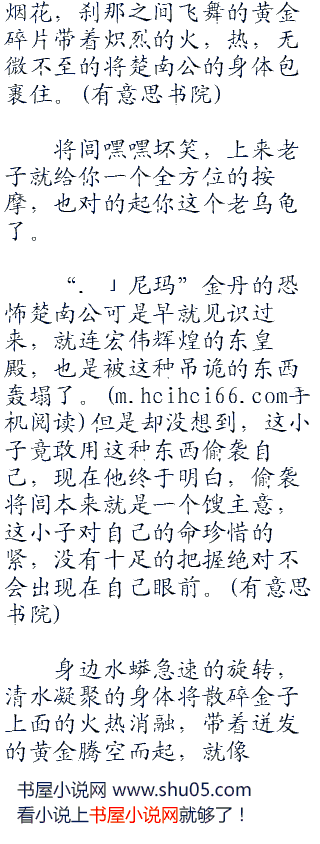 烟花，刹那之间飞舞的黄金
碎片带着炽烈的火，热，无
微不至的将楚南公的身体包
裹住。(有意思书院)
将闾嘿嘿坏笑，上来老
子就给你一个全方位的按
摩，也对的起你这个老乌龟
了。
“．」尼玛”金丹的恐
怖楚南公可是早就见识过
来，就连宏伟辉煌的东皇
殿，也是被这种吊诡的东西
轰塌了。(m.hcihci66.com手
机阅读)但是却没想到，这小
子竟敢用这种东西偷袭自
己，现在他终于明白，偷袭
将闾本来就是一个馊主意，
这小子对自己的命珍惜的
紧，没有十足的把握绝对不
会出现在自己眼前。(有意思
书院)
身边水蟒急速的旋转，
清水凝聚的身体将散碎金子
上面的火热消融，带着迸发
的黄金腾空而起，就像
书屋小说网 www.shu05.com
看小说上书屋小说网就够了！